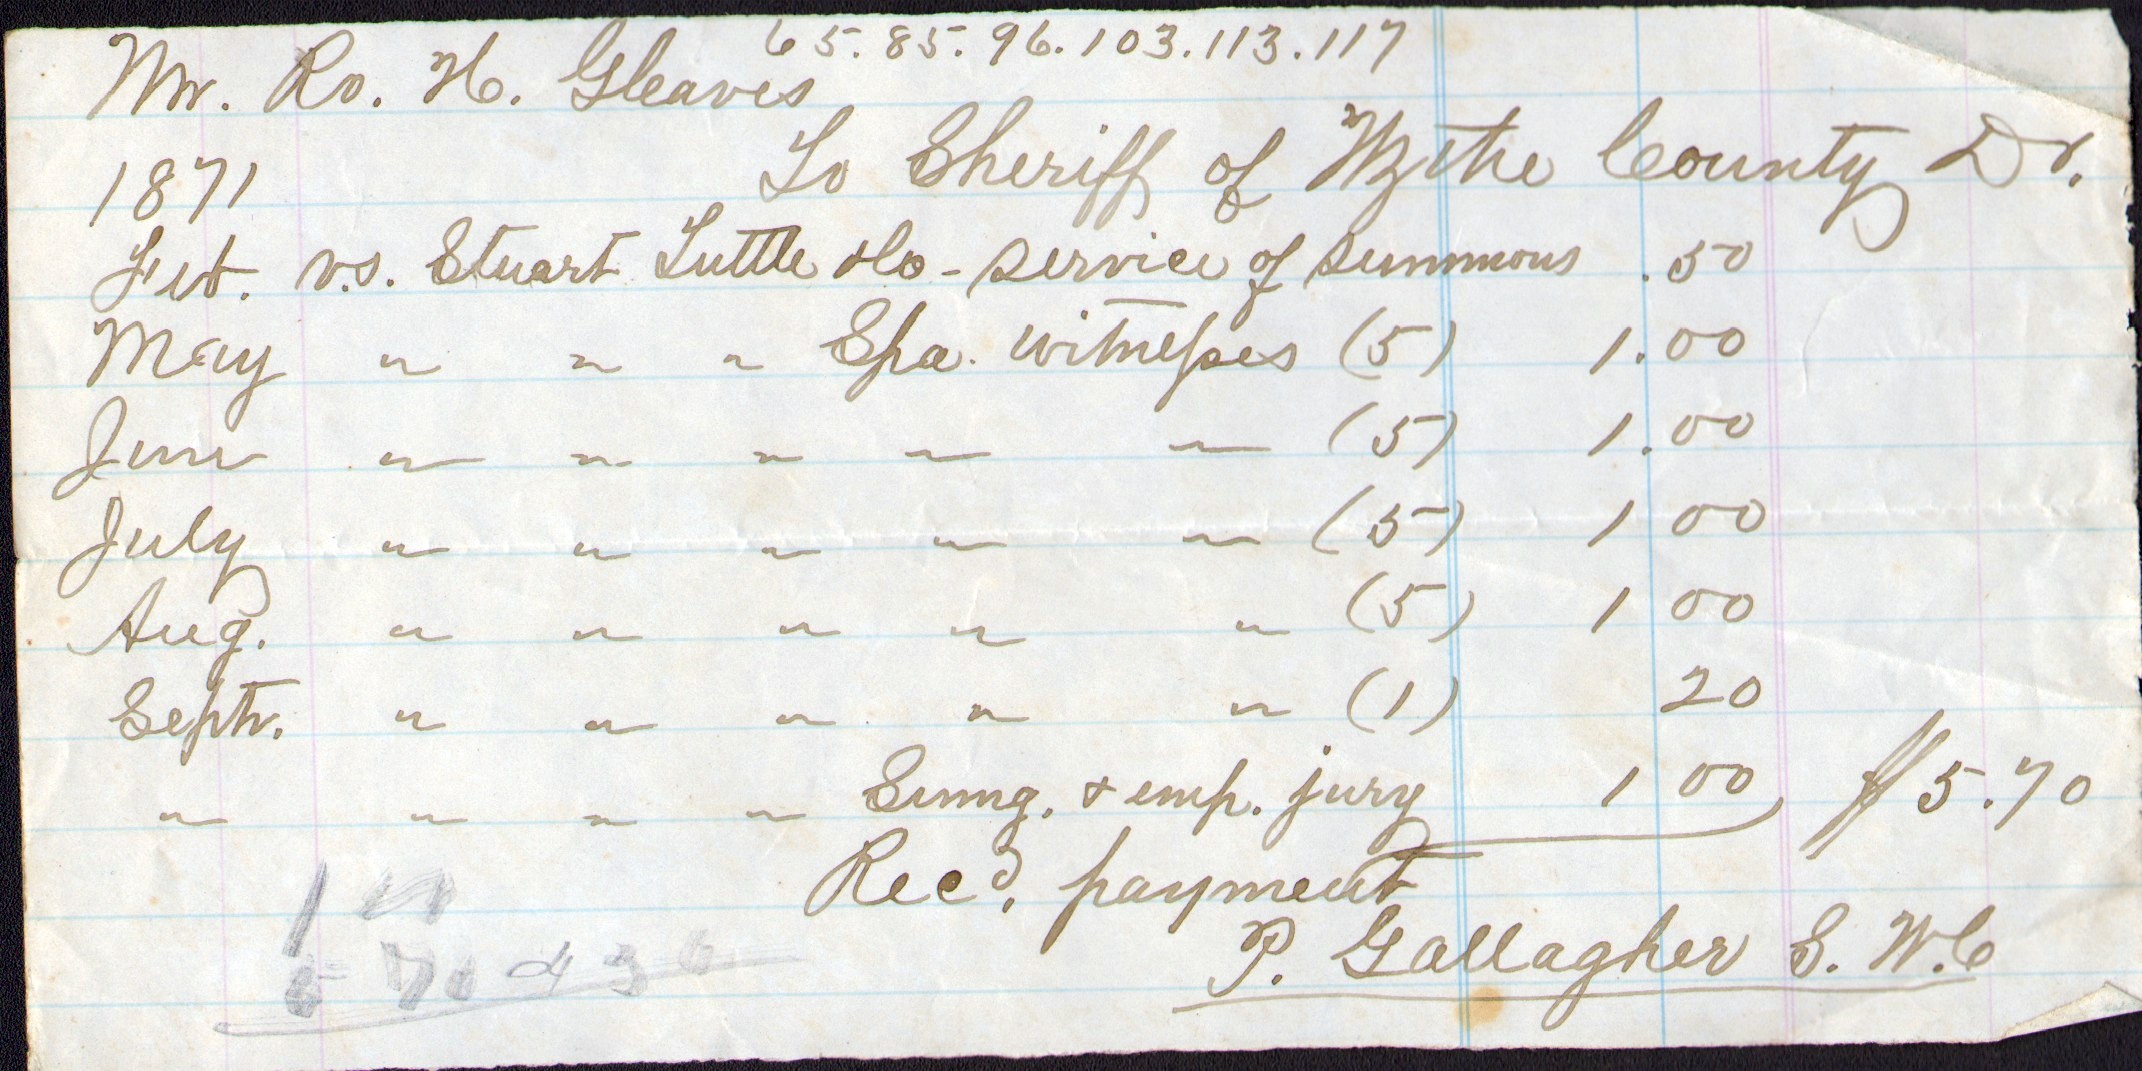 65. 85. 96. 103. 113. 117
Mr. Ro. H. Gleaves
1871 To Sheriff of Wythe County Dr.
Feb. vs. Stuart Tuttle & Co - service of summons .50
May " " " Spa. witnesses (5) 1.00
June " " " " " (5) 1.00
July " " " " " (5) 1 00
Aug. " " " " " (5) 1 00
Septr. " " " " " (1) 20
" " " " Sumg. & emp. jury 1 00 $5.70
Recd. payment
P. Gallagher S. W. C